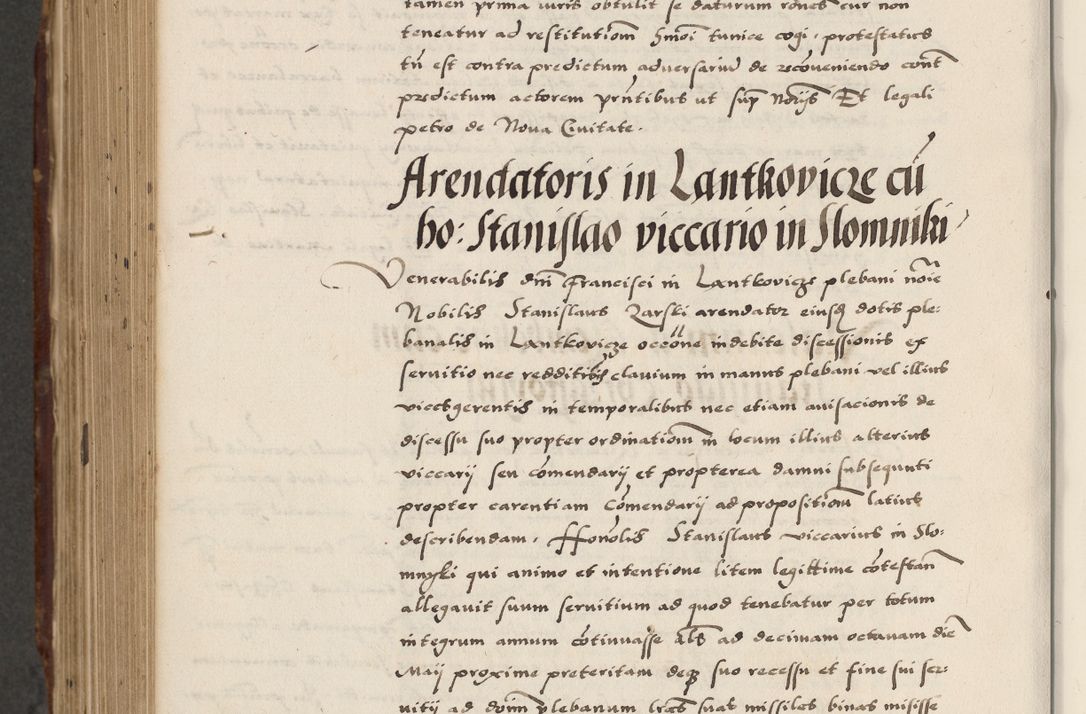 tamen prima iuris obtulit se daturum rones cur non
teneatur ad restitutiom hmoi tunice cogi, protestatus
tn est contra predictum adversariu de recoveniendo eunt
predictum actorem prntibus ut sup Norijs Et legali
petro de Nova Civitate.
Arendatoris in Lantkovicze cu
ho: Stanislao viccario in Slomniki
Venerabilis dni Francisci in Lantkovicze plebani noie
Nobilis Stanislaus Zarski arendator eiusq dotis ple:
banalis in Lantkovicze occone indebite discessionis ex
servitio nec redditiois clavium in manus plebani vel illius
vicesgerentis in temporalibus nec etiam avisacionis de
discessu suo propter ordinatiom in locum illius alterius
viccarij seu comendarij et propterea damni subsequuti
propter carentiam Comendarij ad propositiom latius
describendam. Honolis Stanislaus viccarius in Slo:
mnyki qui animo et intentione litem legittime cotestan
allegavit suum servitium ad quod tenebatur per totum
integrum annum cotinuasse als ad decimam octavam die
Maij proxime preteritam deq suo recessu et fine sui ser:
vitij ad dnum plebanum lras suas missiles binas misisse